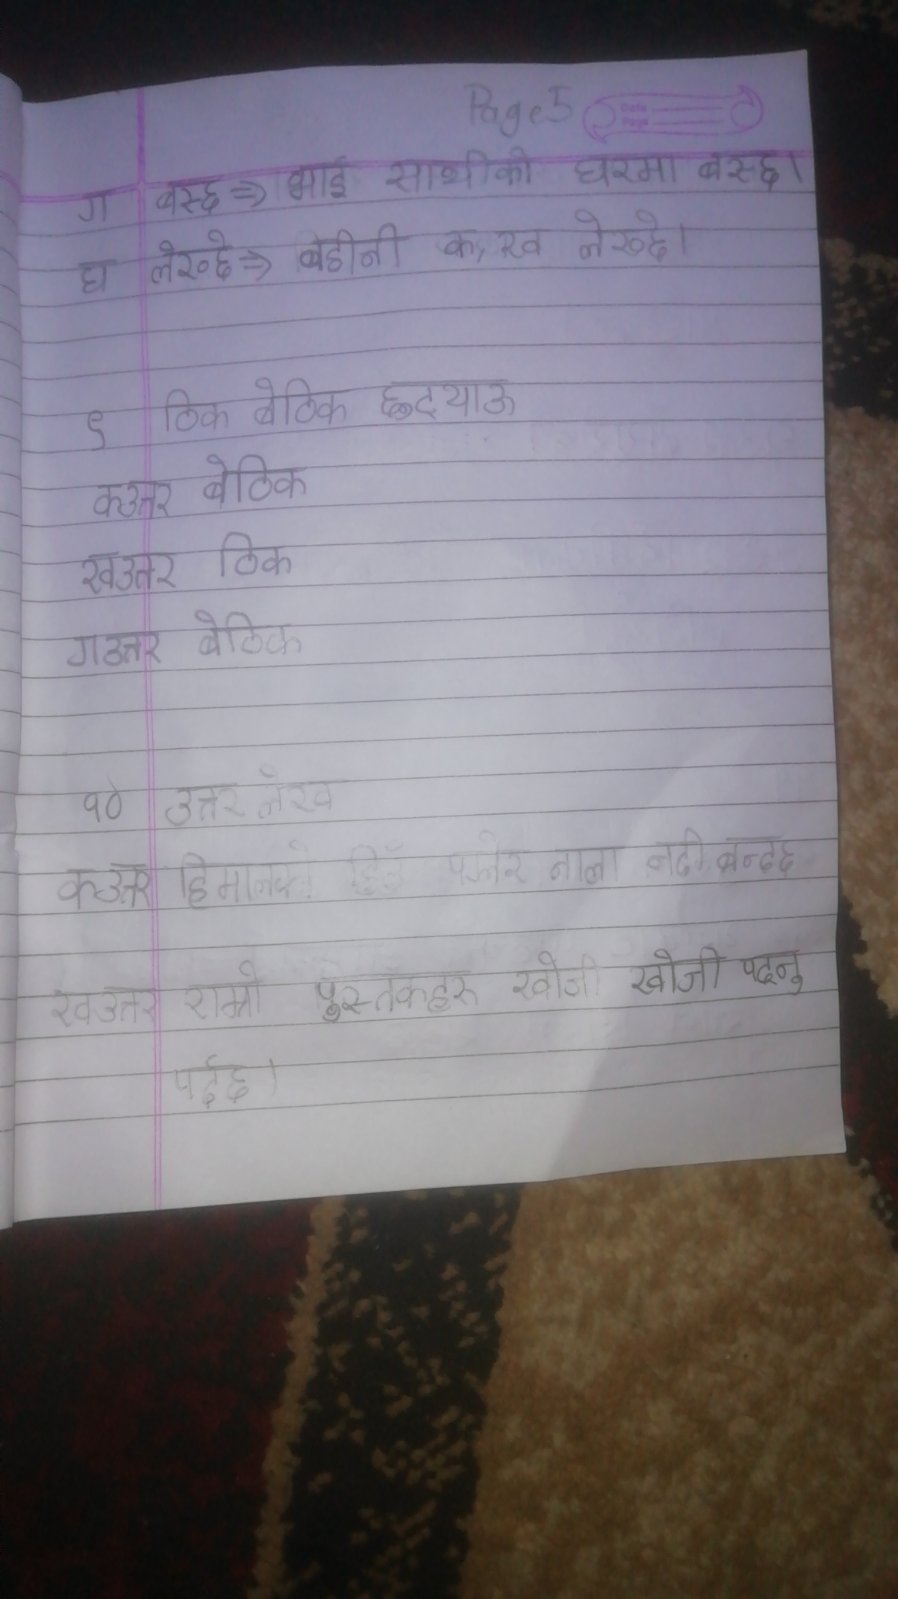 Page 5
Date
Page
ग बस्छ ⇒ भाई साथीको घरमा बस्छ।
घ लेख्छे ⇒ बहीनी क, ख लेख्छे।
९ ठिक बेठिक छुट्याऊ
कउत्तर बेठिक
खउत्तर ठिक
गउत्तर बेठिक
१० उत्तर लेख
कउत्तर हिमालको हिउँ पग्लेर नाला नदी बन्दछ
खउत्तर राम्रो पुस्तकहरु खोजी खोजी पढ्नु
पर्दछ।